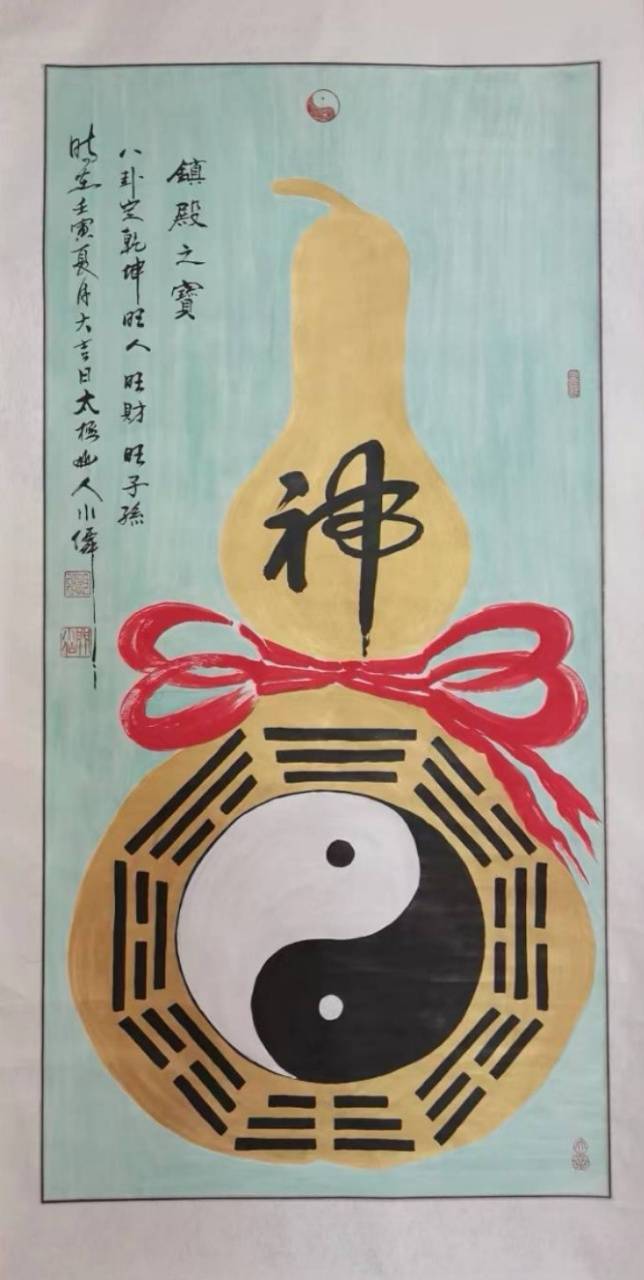 鎮殿之寶
八卦定乾坤旺人旺財旺子孫
時在壬寅夏月大吉日太極山人小儒
神